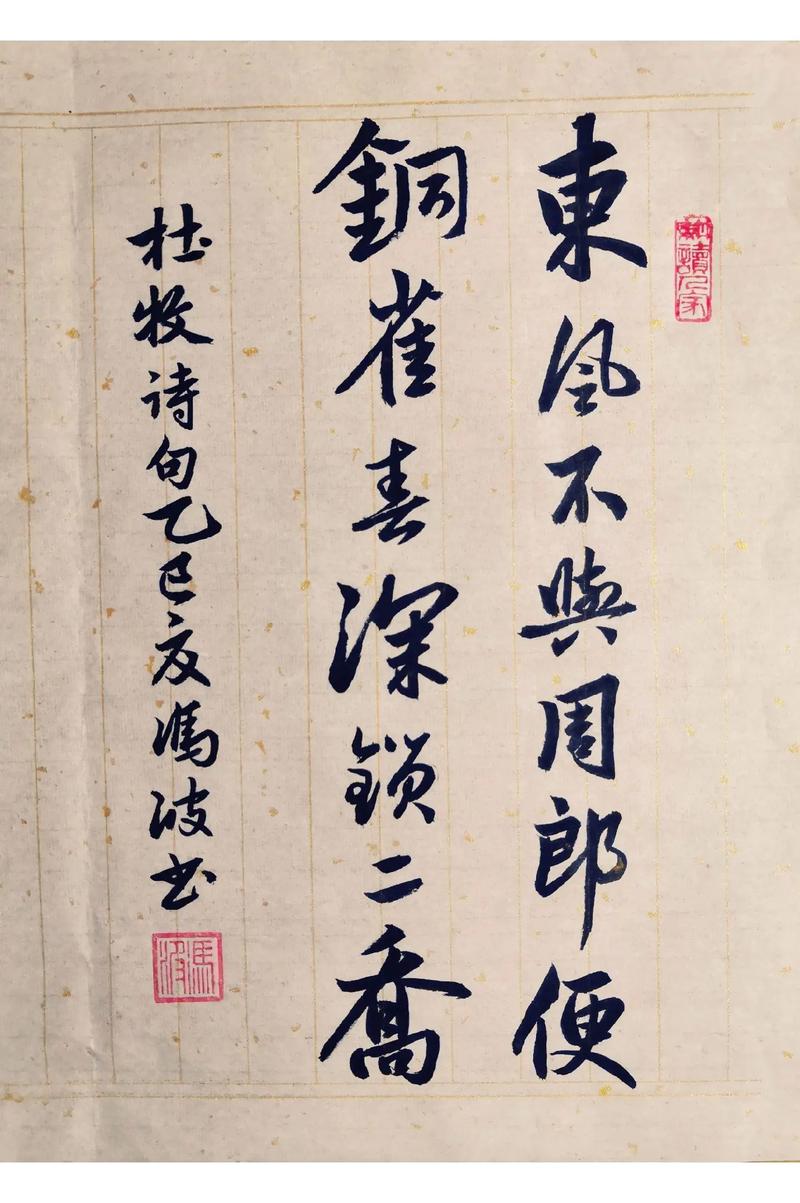 讀人家
東風不與周郎便
銅雀春深鎖二喬
杜牧诗句乙巳夏馮波书
馮波